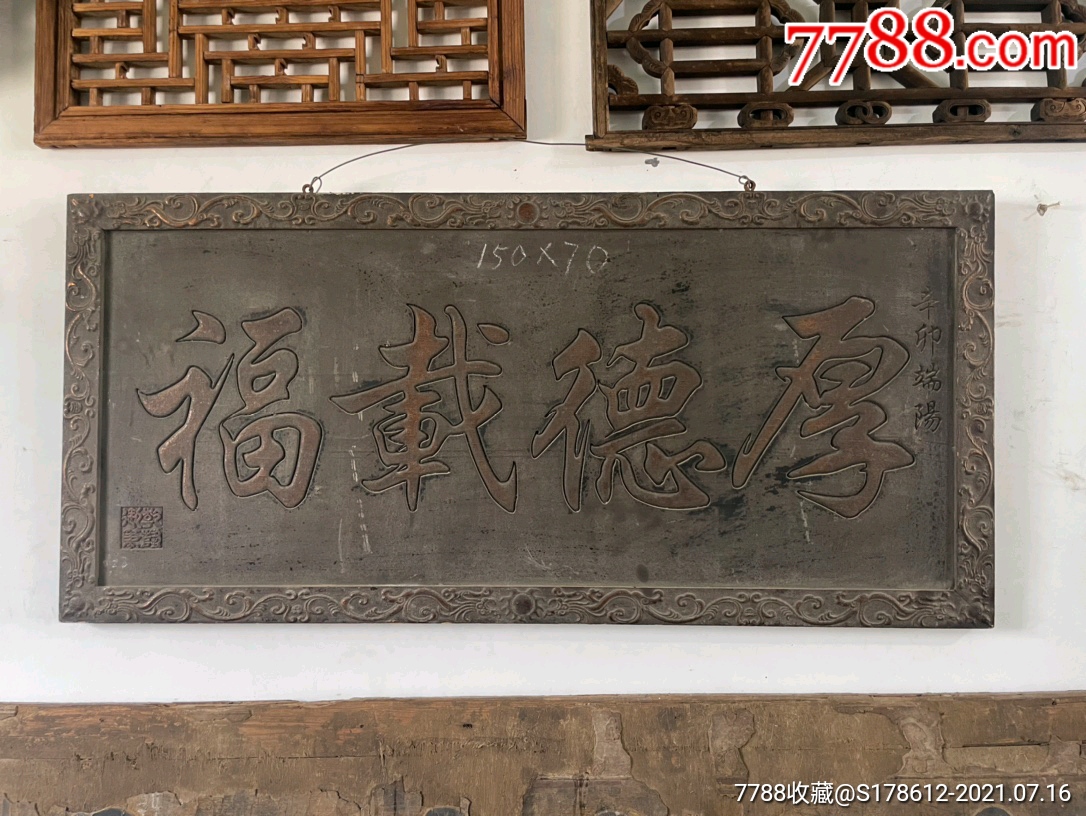 7788.com
150×70
辛卯端陽
厚德載福
7788收藏@S178612-2021.07.16